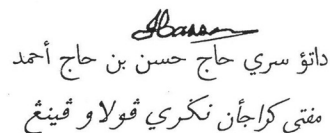 Hassan
داتؤ سري حاج حسن بن حاج أحمد
مفتي كراجأن نݢري ڤولاو ڤينڠ